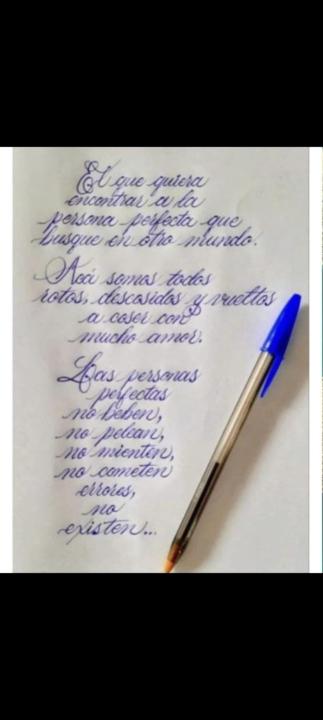 El que quiera
encontrar a la
persona perfecta que
busque en otro mundo.
Acá somos todos
rotos, descosidos y vueltos
a coser con
mucho amor.
Las personas
perfectas
no beben,
no pelean,
no mienten,
no cometen
errores,
no
existen...